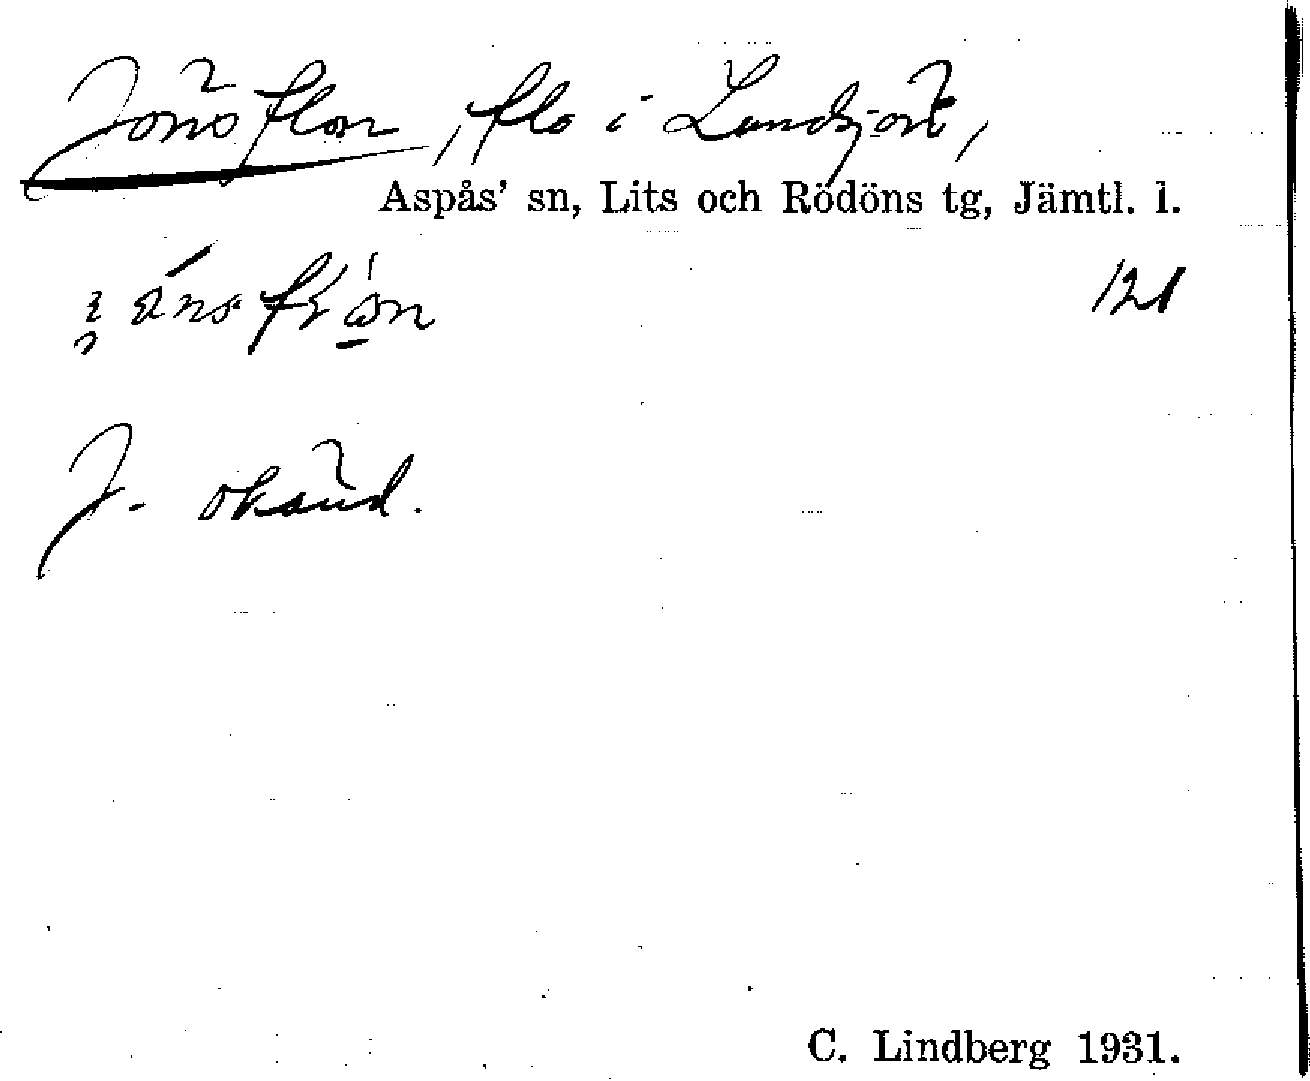 Jönsflon, flo i Lundsjön,
Aspås' sn, Lits och Rödöns tg, Jämtl. l.
121
J. okänd.
C. Lindberg 1931.